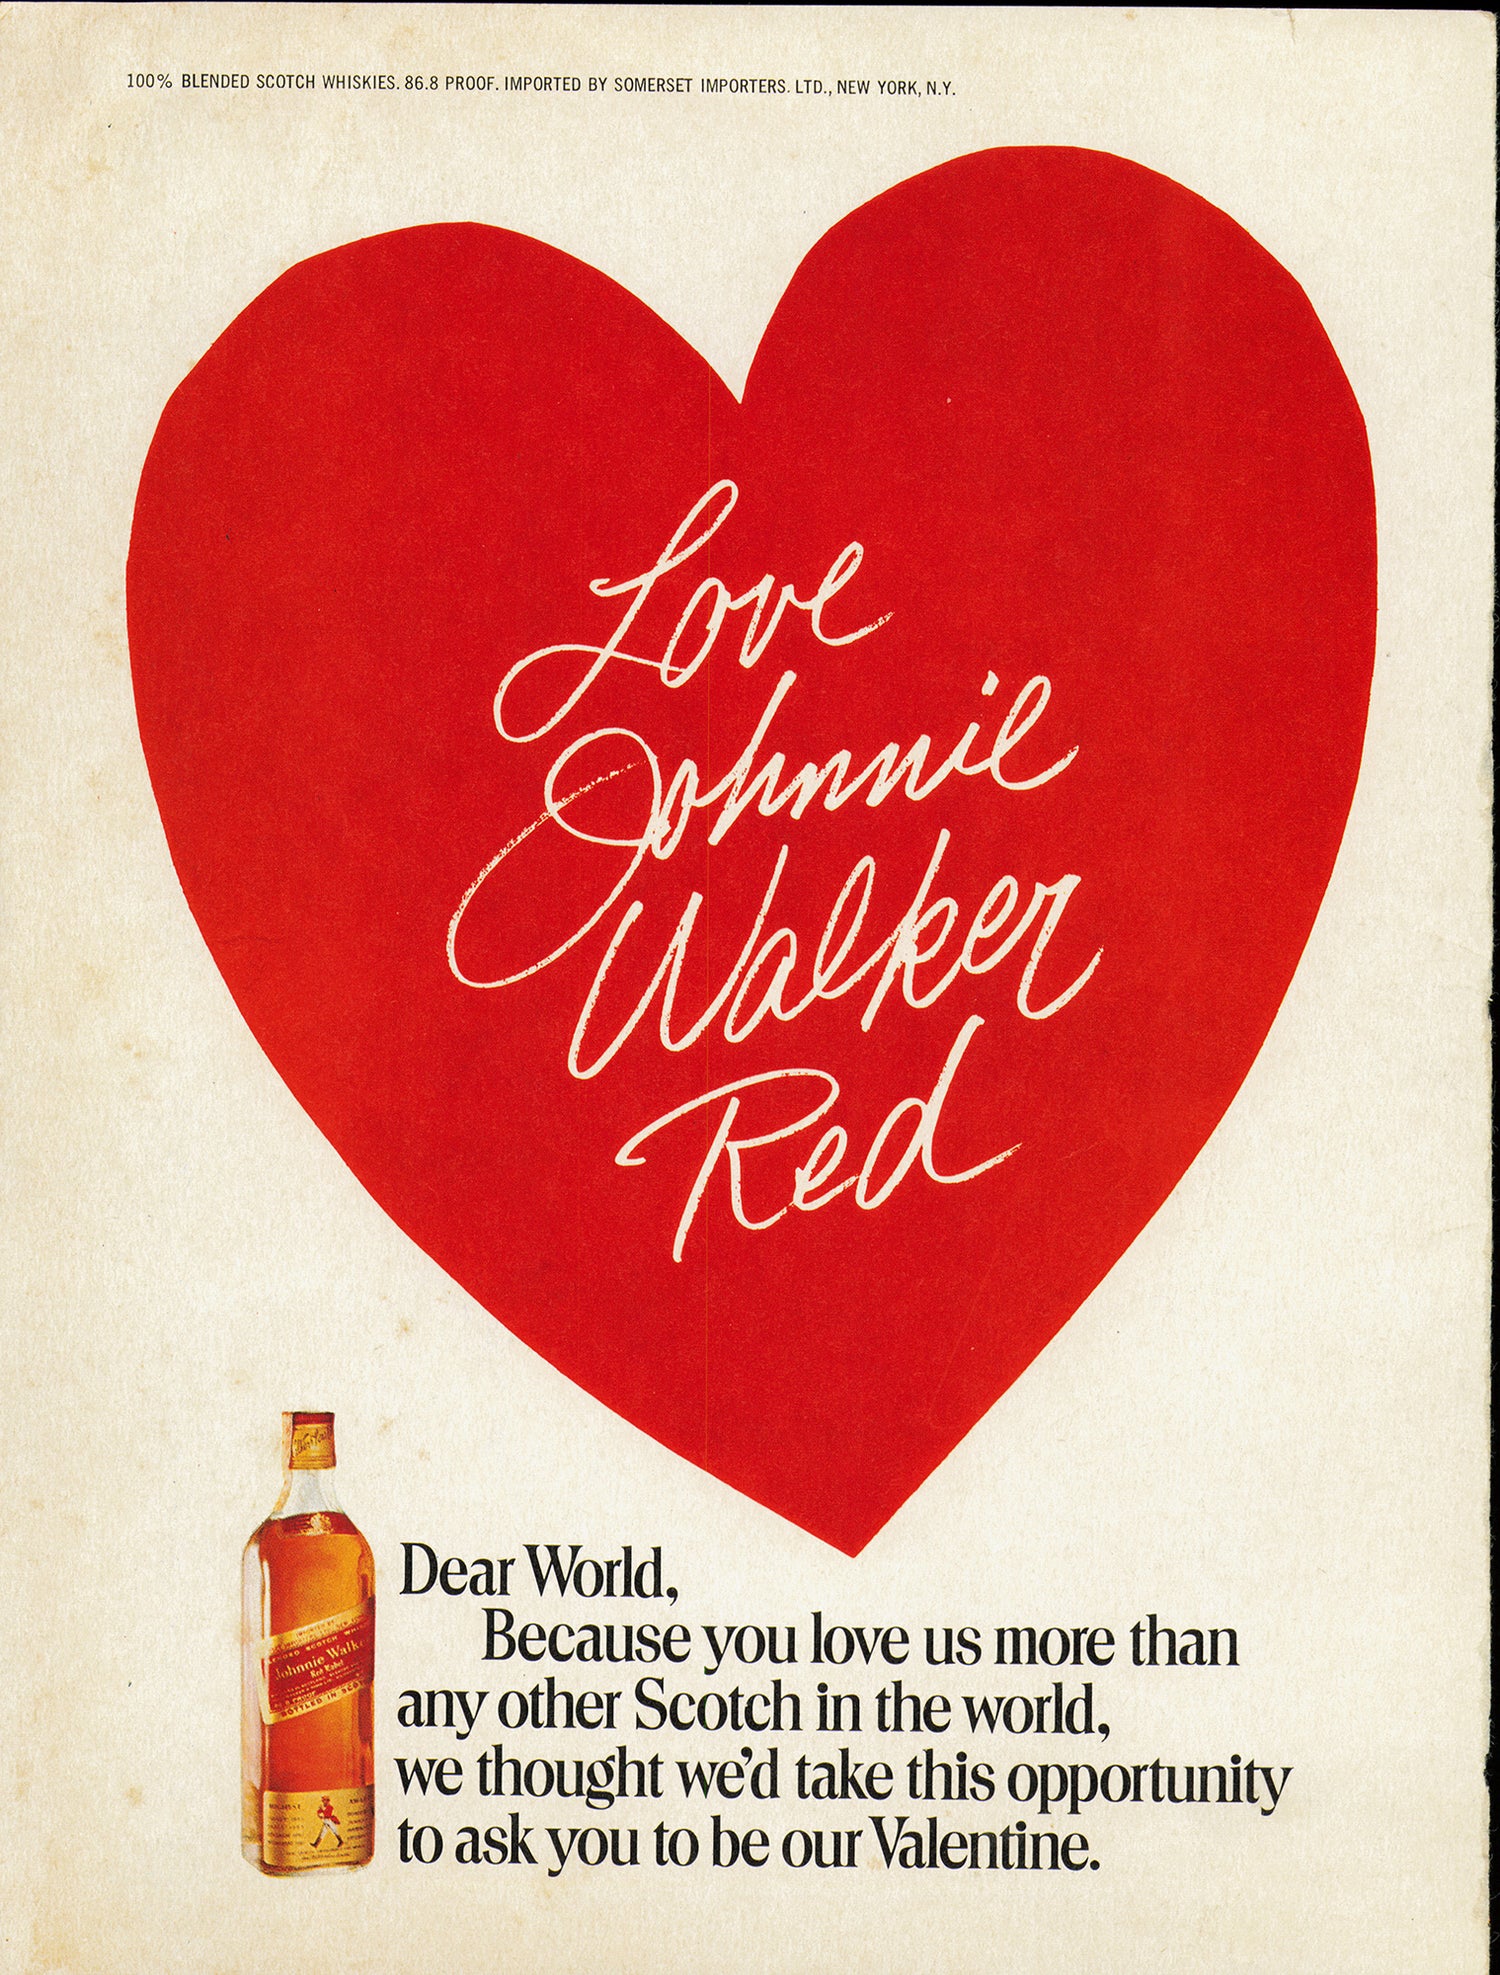 100% BLENDED SCOTCH WHISKIES. 86.8 PROOF. IMPORTED BY SOMERSET IMPORTERS. LTD., NEW YORK, N.Y.
Love
Johnnie
Walker
Red
Johnnie Walke
Red Label
BOTTLED IN SCOT
Dear World,
Because you love us more than
any other Scotch in the world,
we thought we'd take this opportunity
to ask you to be our Valentine.